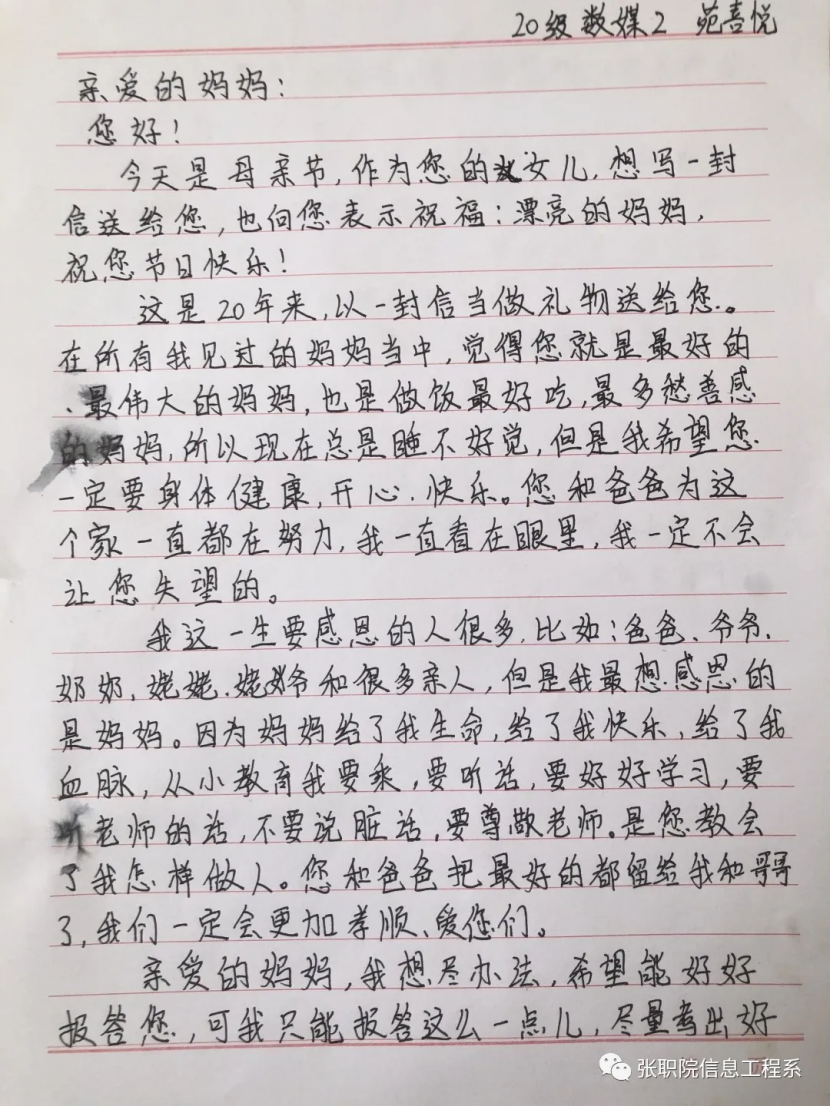 20级数媒2 苑喜悦
亲爱的妈妈:
您好!
今天是母亲节,作为您的女儿,想写一封
信送给您,也向您表示祝福:漂亮的妈妈,
祝您节日快乐!
这是20年来,以一封信当做礼物送给您。
在所有我见过的妈妈当中,觉得您就是最好的
、最伟大的妈妈,也是做饭最好吃,最多愁善感
的妈妈,所以现在总是睡不好觉,但是我希望您
一定要身体健康,开心、快乐。您和爸爸为这
个家一直都在努力,我一直看在眼里,我一定不会
让您失望的。
我这一生要感恩的人很多,比如:爸爸、爷爷、
奶奶、姥姥、姥爷和很多亲人,但是我最想感恩的
是妈妈。因为妈妈给了我生命,给了我快乐,给了我
血脉,从小教育我要乖,要听话,要好好学习,要
听老师的话,不要说脏话,要尊敬老师。是您教会
了我怎样做人。您和爸爸把最好的都留给我和哥哥
了,我们一定会更加孝顺、爱您们。
亲爱的妈妈,我想尽办法,希望能好好
报答您,可我只能报答这么一点儿,尽量考出好
张职院信息工程系